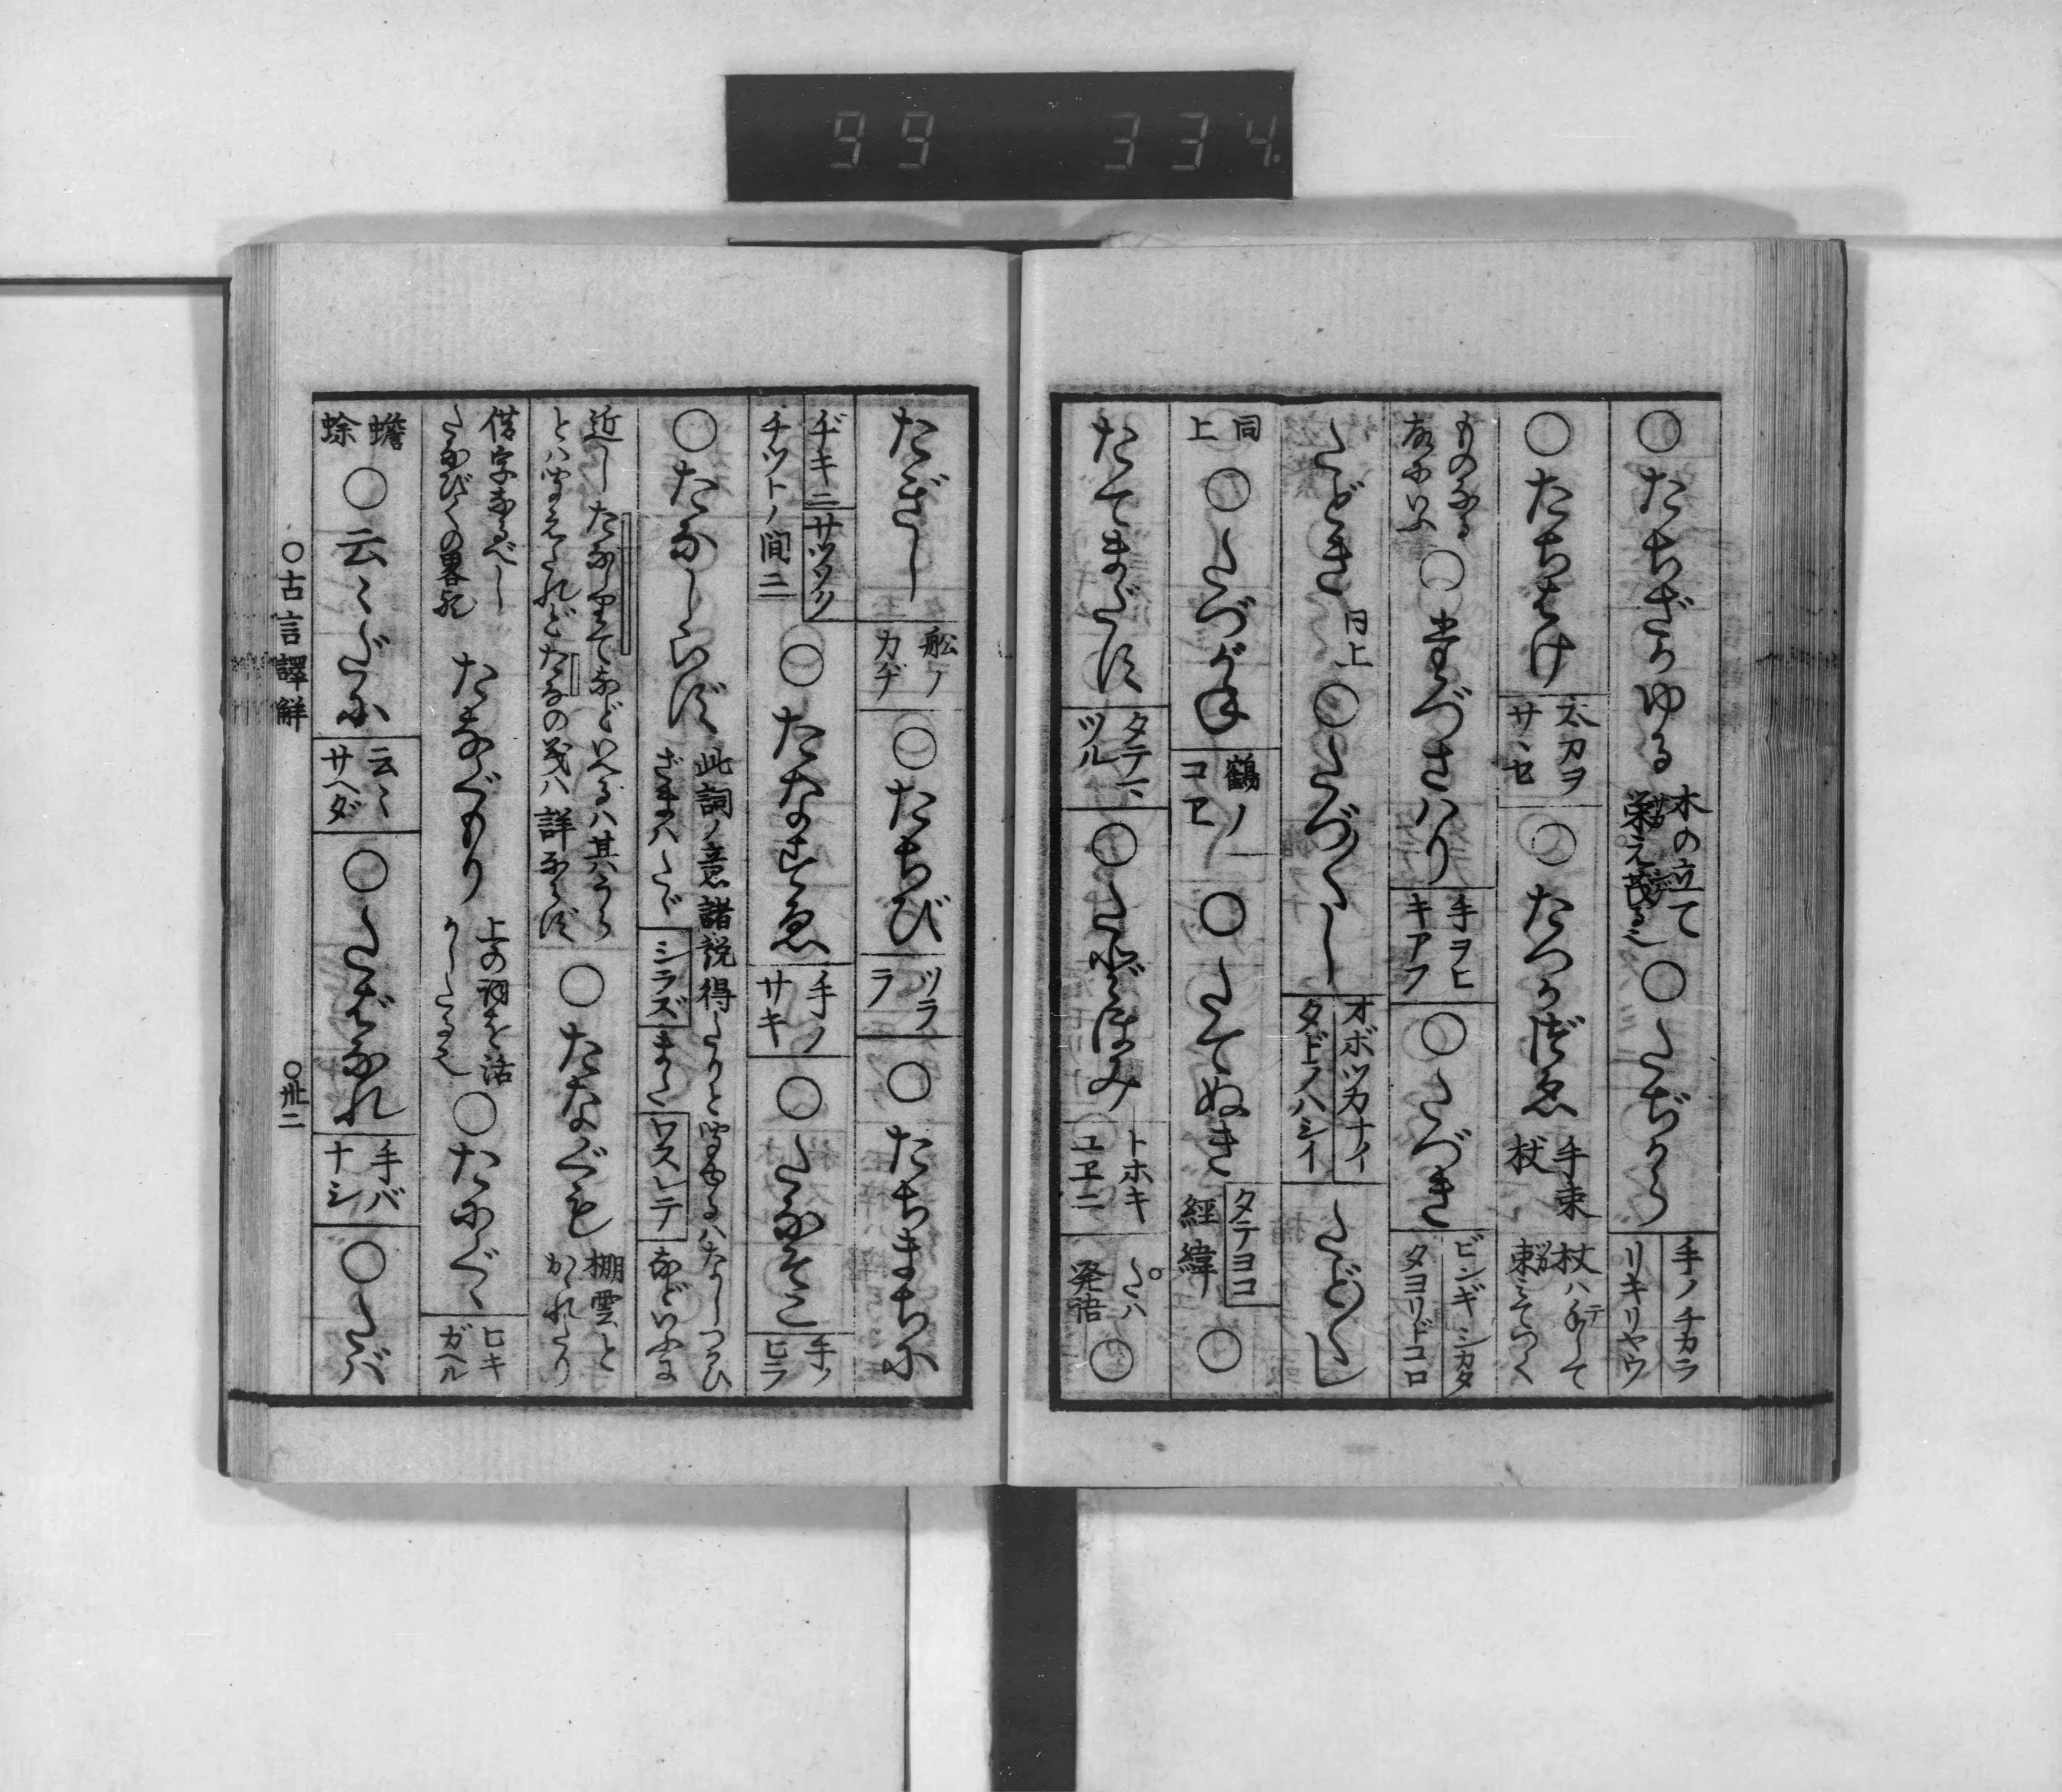 99 334.
○たちざかゆる 木の立て栄え茂る也 ○たぢから 手ノチカラ リキリヤウ
○たちはけ 太刀ヲサヽセ ○たつかづゑ 手束杖 杖ハ手して束みてつく
ものなる故にいふ ○たづさはり 手ヲヒキアフ ○たづき ビンギシカタ タヨリドコロ
たどき 同上 ○たづ〳〵し オボツカナイ タドノハシイ たど〳〵し
同上 ○たづがね 鶴ノコヱ ○たてぬき タテヨコ 經緯 ○
たてまだす タテマツル ○たどほみ トホキユヱニ たハ発語 ○
たぎし 舩ノカヂ ○たちび ツラヽ ○たちまちに
ヂキニ サツソク チツトノ間ニ ○たなすゑ 手ノサキ ○たなそこ 手ノヒラ
○たなしらず 此詞ノ意諸説得たりと聞ゆるハなしつらひざまハたゞ シラズ また ワスレテ などいふに
近し たなしりて などいへるハ其うらとハ聞えたれど たな の義ハ詳ならず ○たなぐも 棚雲とかゝれたり
借字なるべしたなびくの畧歟 たなぐもり 上の詞を活かしたる也 ○たにぐく ヒキガヘル
蟾蜍 ○云〻だに 云〻サヘダ ○たばなれ 手バナシ ○たば
○古言譯解 ○卅二